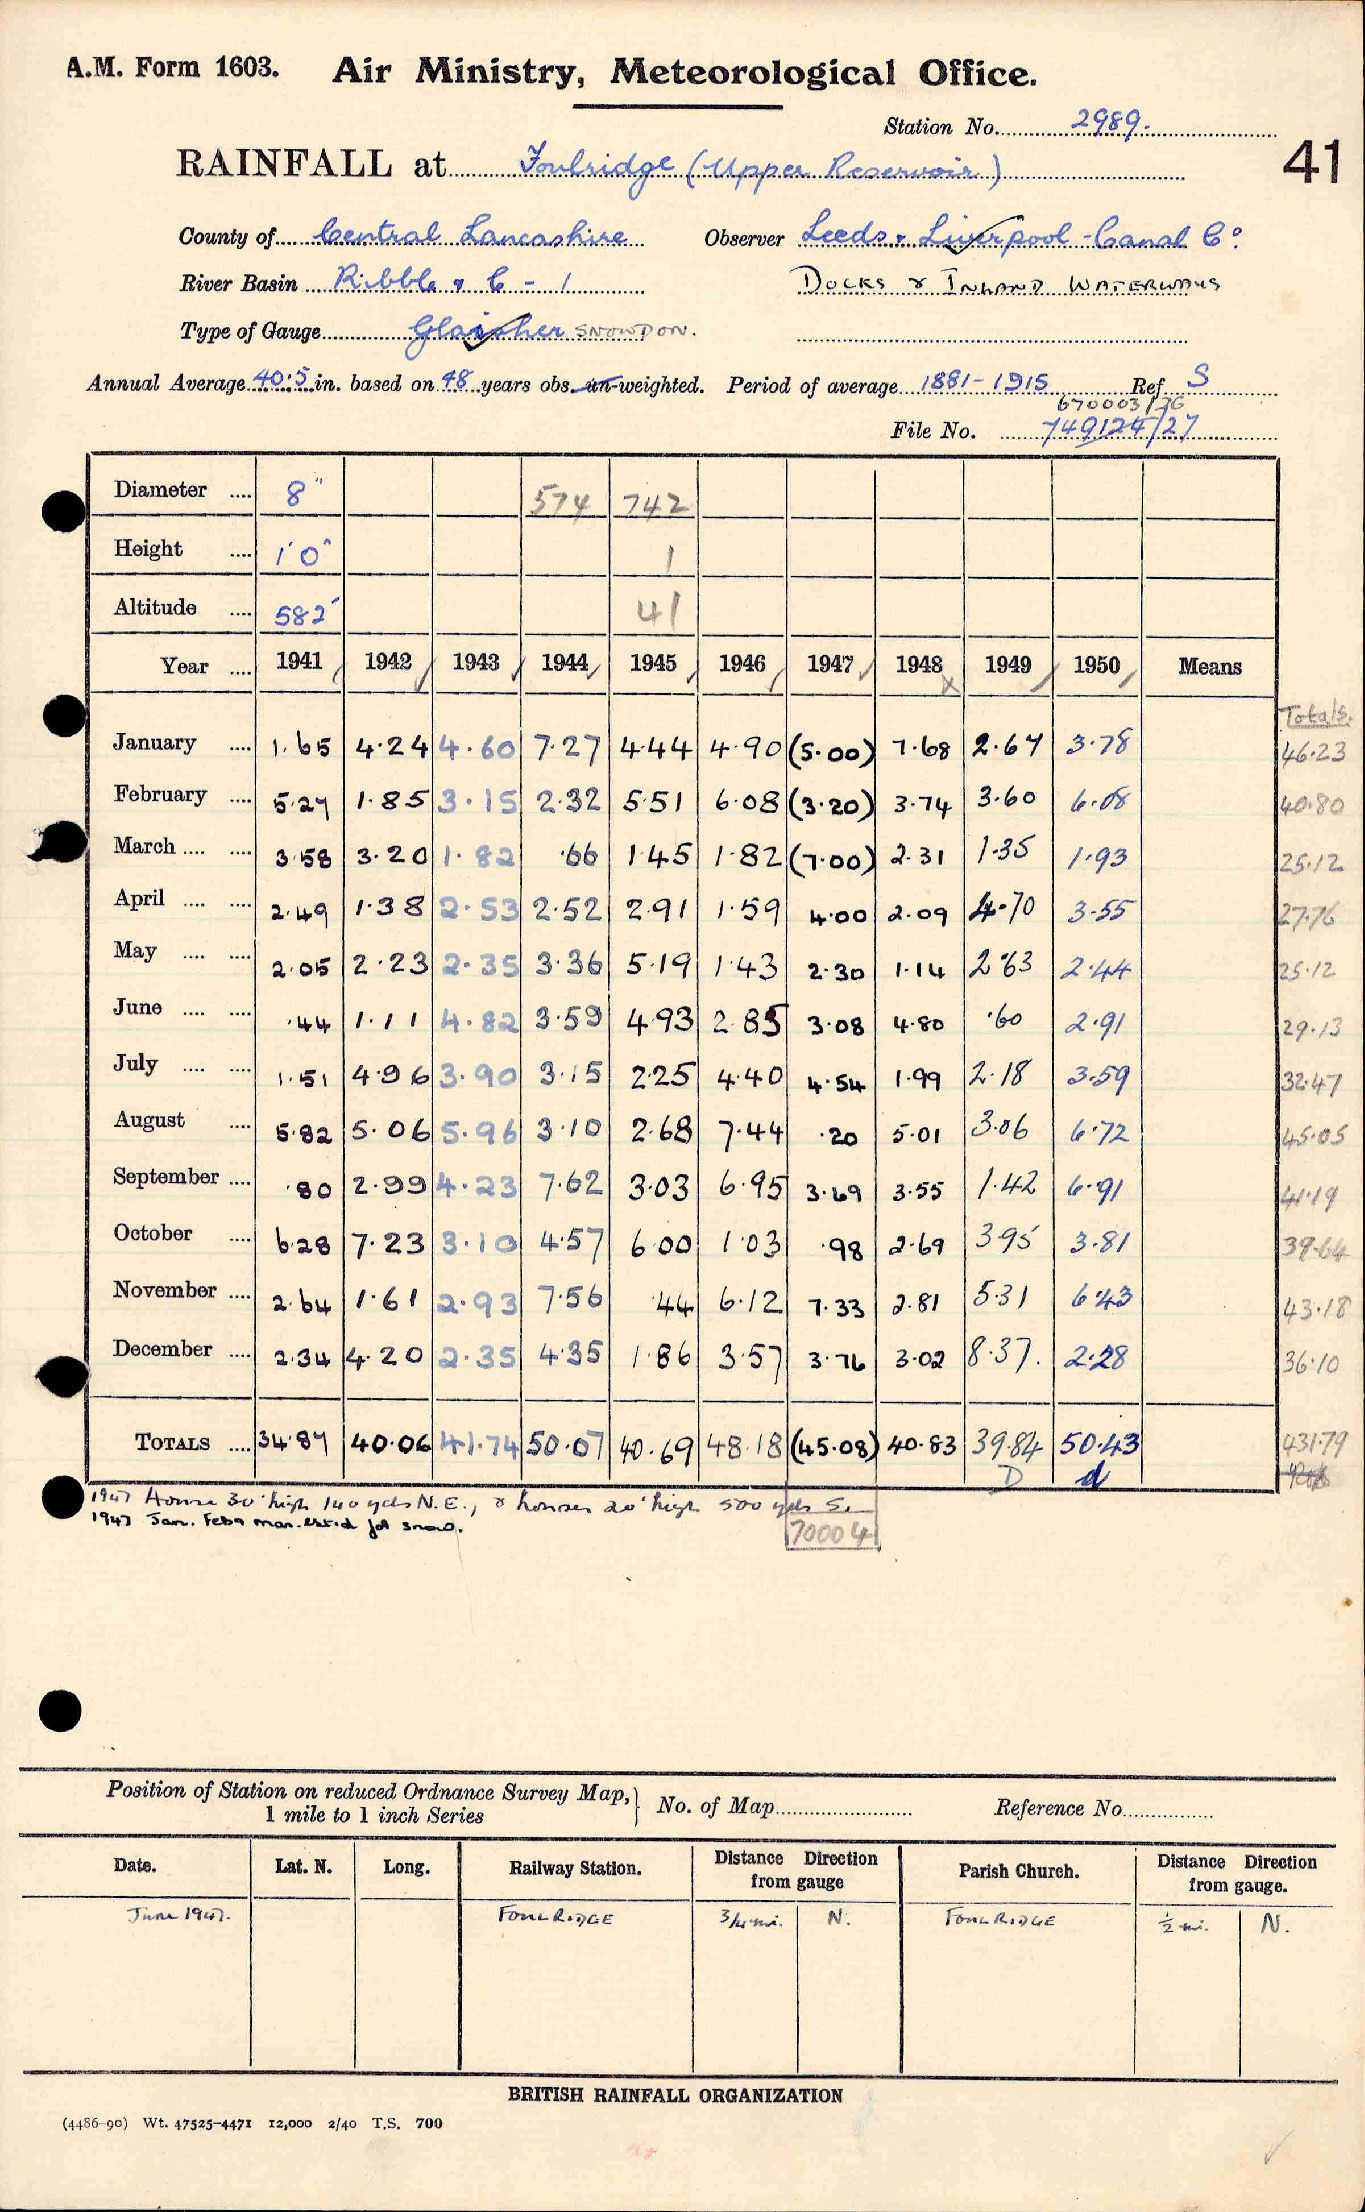 A.M. Form 1603. Air Ministry, Meteorological Office.
Station No. 2989.
41
RAINFALL at Foulridge (Upper Reservoir)
County of Central Lancashire Observer Leeds & Liverpool Canal Co
River Basin Ribble & C - 1 DOCKS & INLAND WATERWAYS
Type of Gauge Glaisher SNOWDON.
Annual Average 40.5 in. based on 48 years obs. un-weighted. Period of average 1881-1915 Ref S
670003/26
File No. 749124/27
Diameter .... 8" 574 742
Height .... 1'0" 1
Altitude .... 582' 41
Year .... 1941 1942 1943 1944 1945 1946 1947 1948 1949 1950 Means
x
Totals.
January .... 1.65 4.24 4.60 7.27 4.44 4.90 (5.00) 7.68 2.67 3.78 46.23
February .... 5.27 1.85 3.15 2.32 5.51 6.08 (3.20) 3.74 3.60 6.08 40.80
March .... .... 3.58 3.20 1.82 .66 1.45 1.82 (7.00) 2.31 1.35 1.93 25.12
April .... .... 2.49 1.38 2.53 2.52 2.91 1.59 4.00 2.09 4.70 3.55 27.76
May .... .... 2.05 2.23 2.35 3.36 5.19 1.43 2.30 1.14 2.63 2.44 25.12
June .... .... .44 1.11 4.82 3.59 4.93 2.85 3.08 4.80 .60 2.91 29.13
July .... .... 1.51 4.96 3.90 3.15 2.25 4.40 4.54 1.99 2.18 3.59 32.47
August .... 5.82 5.06 5.96 3.10 2.68 7.44 .20 5.01 3.06 6.72 45.05
September .... .80 2.99 4.23 7.62 3.03 6.95 3.69 3.55 1.42 6.91 41.19
October .... 6.28 7.23 3.10 4.57 6.00 1.03 .98 2.69 3.95 3.81 39.64
November .... 2.64 1.61 2.93 7.56 .44 6.12 7.33 2.81 5.31 6.43 43.18
December .... 2.34 4.20 2.35 4.35 1.86 3.57 3.76 3.02 8.37. 2.28 36.10
TOTALS .... 34.87 40.06 41.74 50.07 40.69 48.18 (45.08) 40.83 39.84 50.43 431.79
D d
1947 House 30' high 140 yds N.E., & houses 20' high 500 yds S.
1947 Jan. Feb & Mar. est'd for snow.
70004
Position of Station on reduced Ordnance Survey Map, 1 mile to 1 inch Series } No. of Map Reference No.
Date. Lat. N. Long. Railway Station. Distance Direction from gauge Parish Church. Distance Direction from gauge.
June 1947. FOULRIDGE 3/4 mi. N. FOULRIDGE ½ mi. N.
BRITISH RAINFALL ORGANIZATION
(4486-90) Wt. 47525-4471 12,000 2/40 T.S. 700